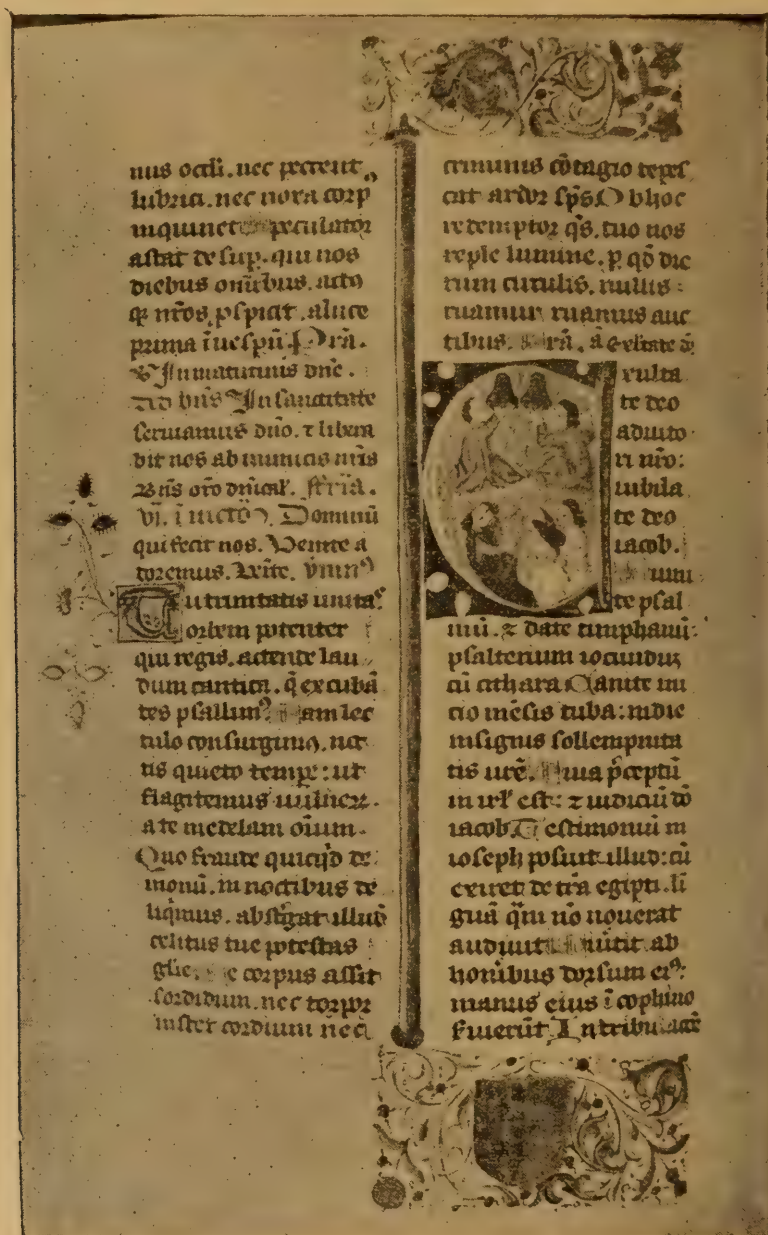 nus oculi. nec peccent
lubrici. nec noxa corp
inquinet speculator
astat desup. qui nos
diebus omībus. acto
qʒ nr̄os. pspicit. a luce
prima ī vesperū. Or̄a.
V In matutinis dn̄e.
Ad bn̄s In sanctitate
seruiamus dn̄o. ⁊ libera
bit nos ab inimicis nr̄is
Bn̄s oro dnical. Feria.
vi. ī nocto. Dominū
qui fecit nos. Venite a
doremus. Vēite. ymn
Tu trinitatis unitaꝰ
orbem potenter
qui regis. actende lau
dum cantica. q̄ excubā
tes psallimꝰ. am lec
tulo consurgimꝰ. noc
tis quieto tempe: ut
flagitemus uulneꝝ.
a te medelam oīum.
Quo fraude quicqͥd de
monū. in noctibus de
liqimus. abstgat illud
celitus tue potestas
glīe. e corpus assit
sordidum. nec torpor
instet cordium nec
criminis cōtagio tepes
cat ardor sp̄s. Obhoc
redemptor q̄s. tuo nos
reple lumine. p qd̄ die
rum circulis. nullis
ruamus auc
tibus. a. Exultate d̄
xulta
te deo
adiuto
ri nr̄o:
iubila
te deo
iacob.
umi
te psal
mū. ⁊ date timphanū:
psalterium iocundū
cū cithara Canite ini
cio mēsis tuba: indie
insignis sollempnita
tis ur̄e. uia p̄ceptū
in isrl̄ est: ⁊ iudiciū dō
iacob. Testimoniū in
ioseph posuit illud: cū
exiret de tr̄a egipti. li
guā q̄m nō nouerat
audiuit iūtit ab
honibus dorsum eiꝰ:
manus eius ī cophino
fuierūt. In tribulac